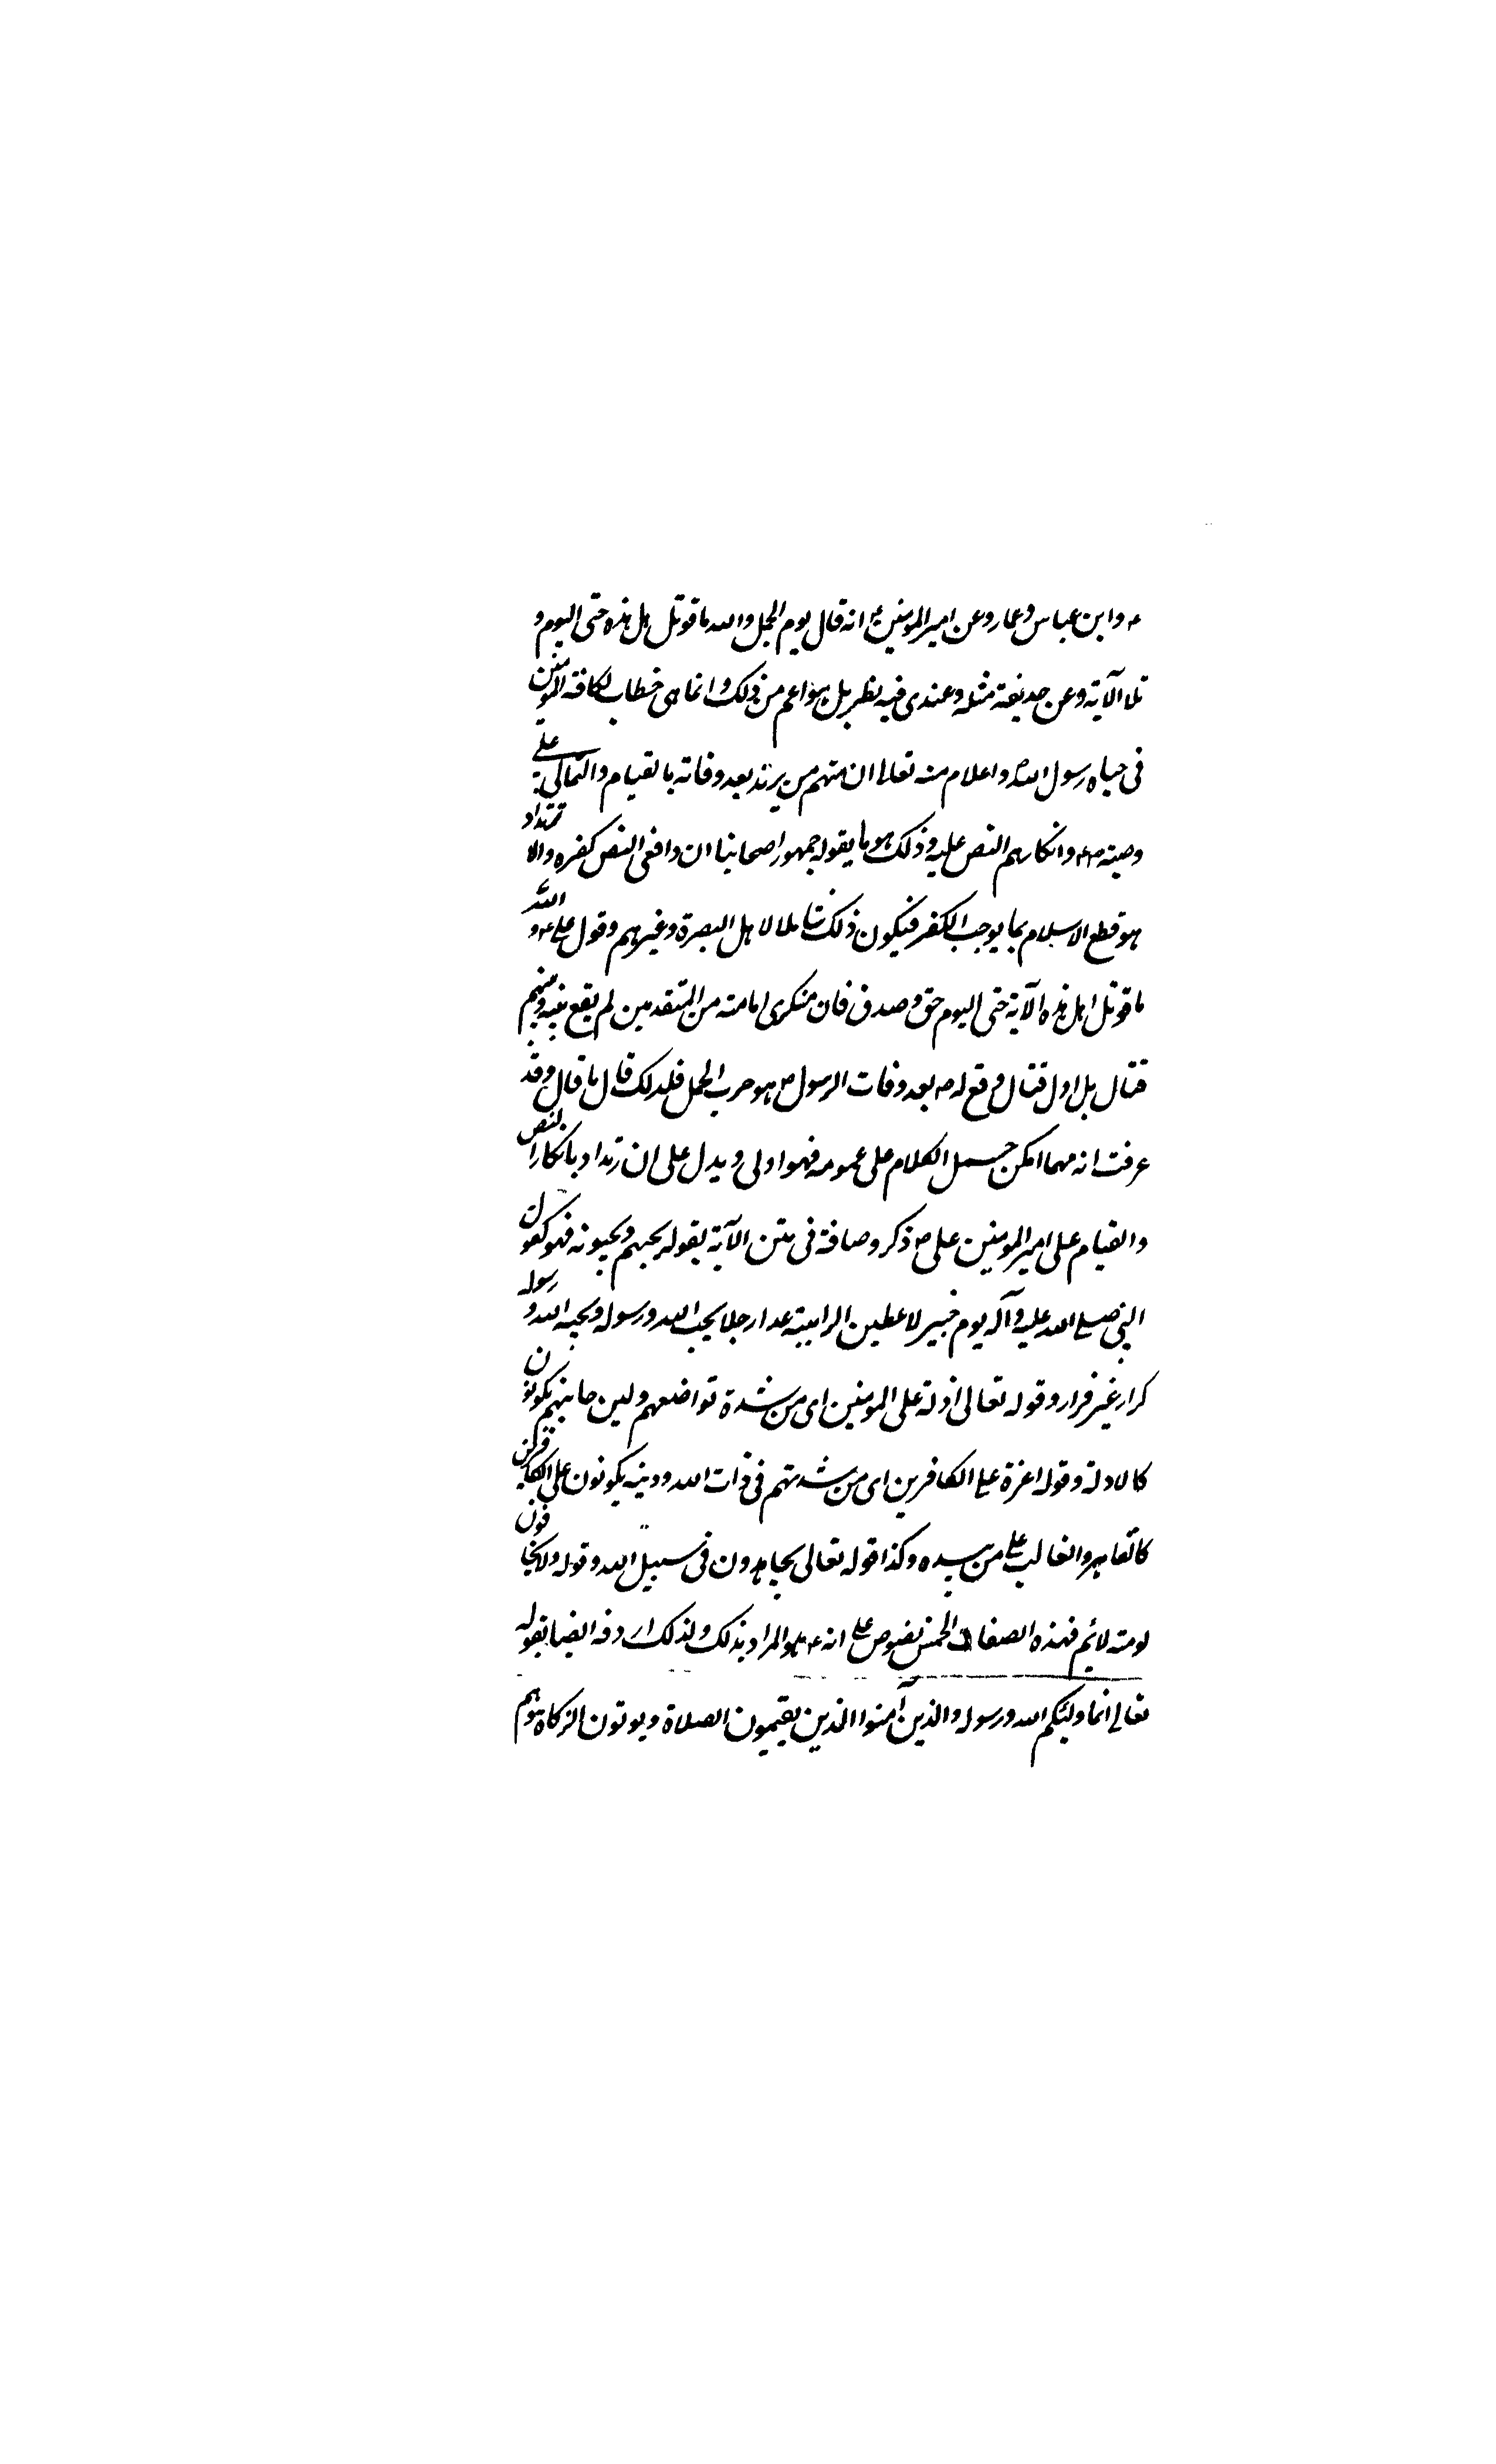 ع وابن عباس وعمار وعن امير المومنين ع انه قال يوم الجمل والله ما قوتل اهل هذه حتى اليوم و
تلا الآية وعن حذيفة مثله وعندى فيه نظر بل هو اعم من ذلك وانما هى خطاب لكافة المومنين
فى حياه رسول الله ص واعلام منه تعالى ان منهم من يرتد بعد وفاته بالقيام والتمالى على
وصيه ص ع وانكارهم النص عليه وذلك هو ما يقوله جمهور اصحابنا ان دافعى النص كفره والارتداد
هو قطع الاسلام بما يوجب الكفر فيكون ذلك شاملا لاهل البصرة وغيرهم وقول على ع والله
ما قوتل اهل هذه الآية حتى اليوم حق وصدق فان منكرى امامته من المتقدمين لم يقع بينه وبينهم
قتال بل اول قتال وقع له ع بعد وفات الرسول ص هو حرب الجمل فلذلك قال ما قال وقد
عرفت انه مهما امكن حمل الكلام على عمومه فهو اولى ويدل على ان ارتداد بانكار النص
والقيام على امير المومنين على ع ذكر اوصافه فى متن الآية بقوله يحبهم ويحبونه فهو كقول
النبى صلى الله عليه وآله يوم خيبر لاعطين الراية غدا رجلا يحب الله ورسوله ويحبه الله ورسوله
كرار غير فرار وقوله تعالى اذلة على المومنين اى من شدة تواضعهم ولين جانبهم يكونون
كالاذلة وقوله اعزة على الكافرين اى من شدتهم فى ذات الله ودينه يكونون على الكافرين
كالقاهر والغالب على من بيده وكذا قوله تعالى يجاهدون فى سبيل الله وقوله ولا يخافون
لومة لائم فهذه الصفات الخمس نصوص على انه ع هو المراد بذلك ولذلك اردفه ايضا بقوله
تعالى انما وليكم الله ورسوله والذين آمنوا الذين يقيمون الصلاة ويوتون الزكاة وهم